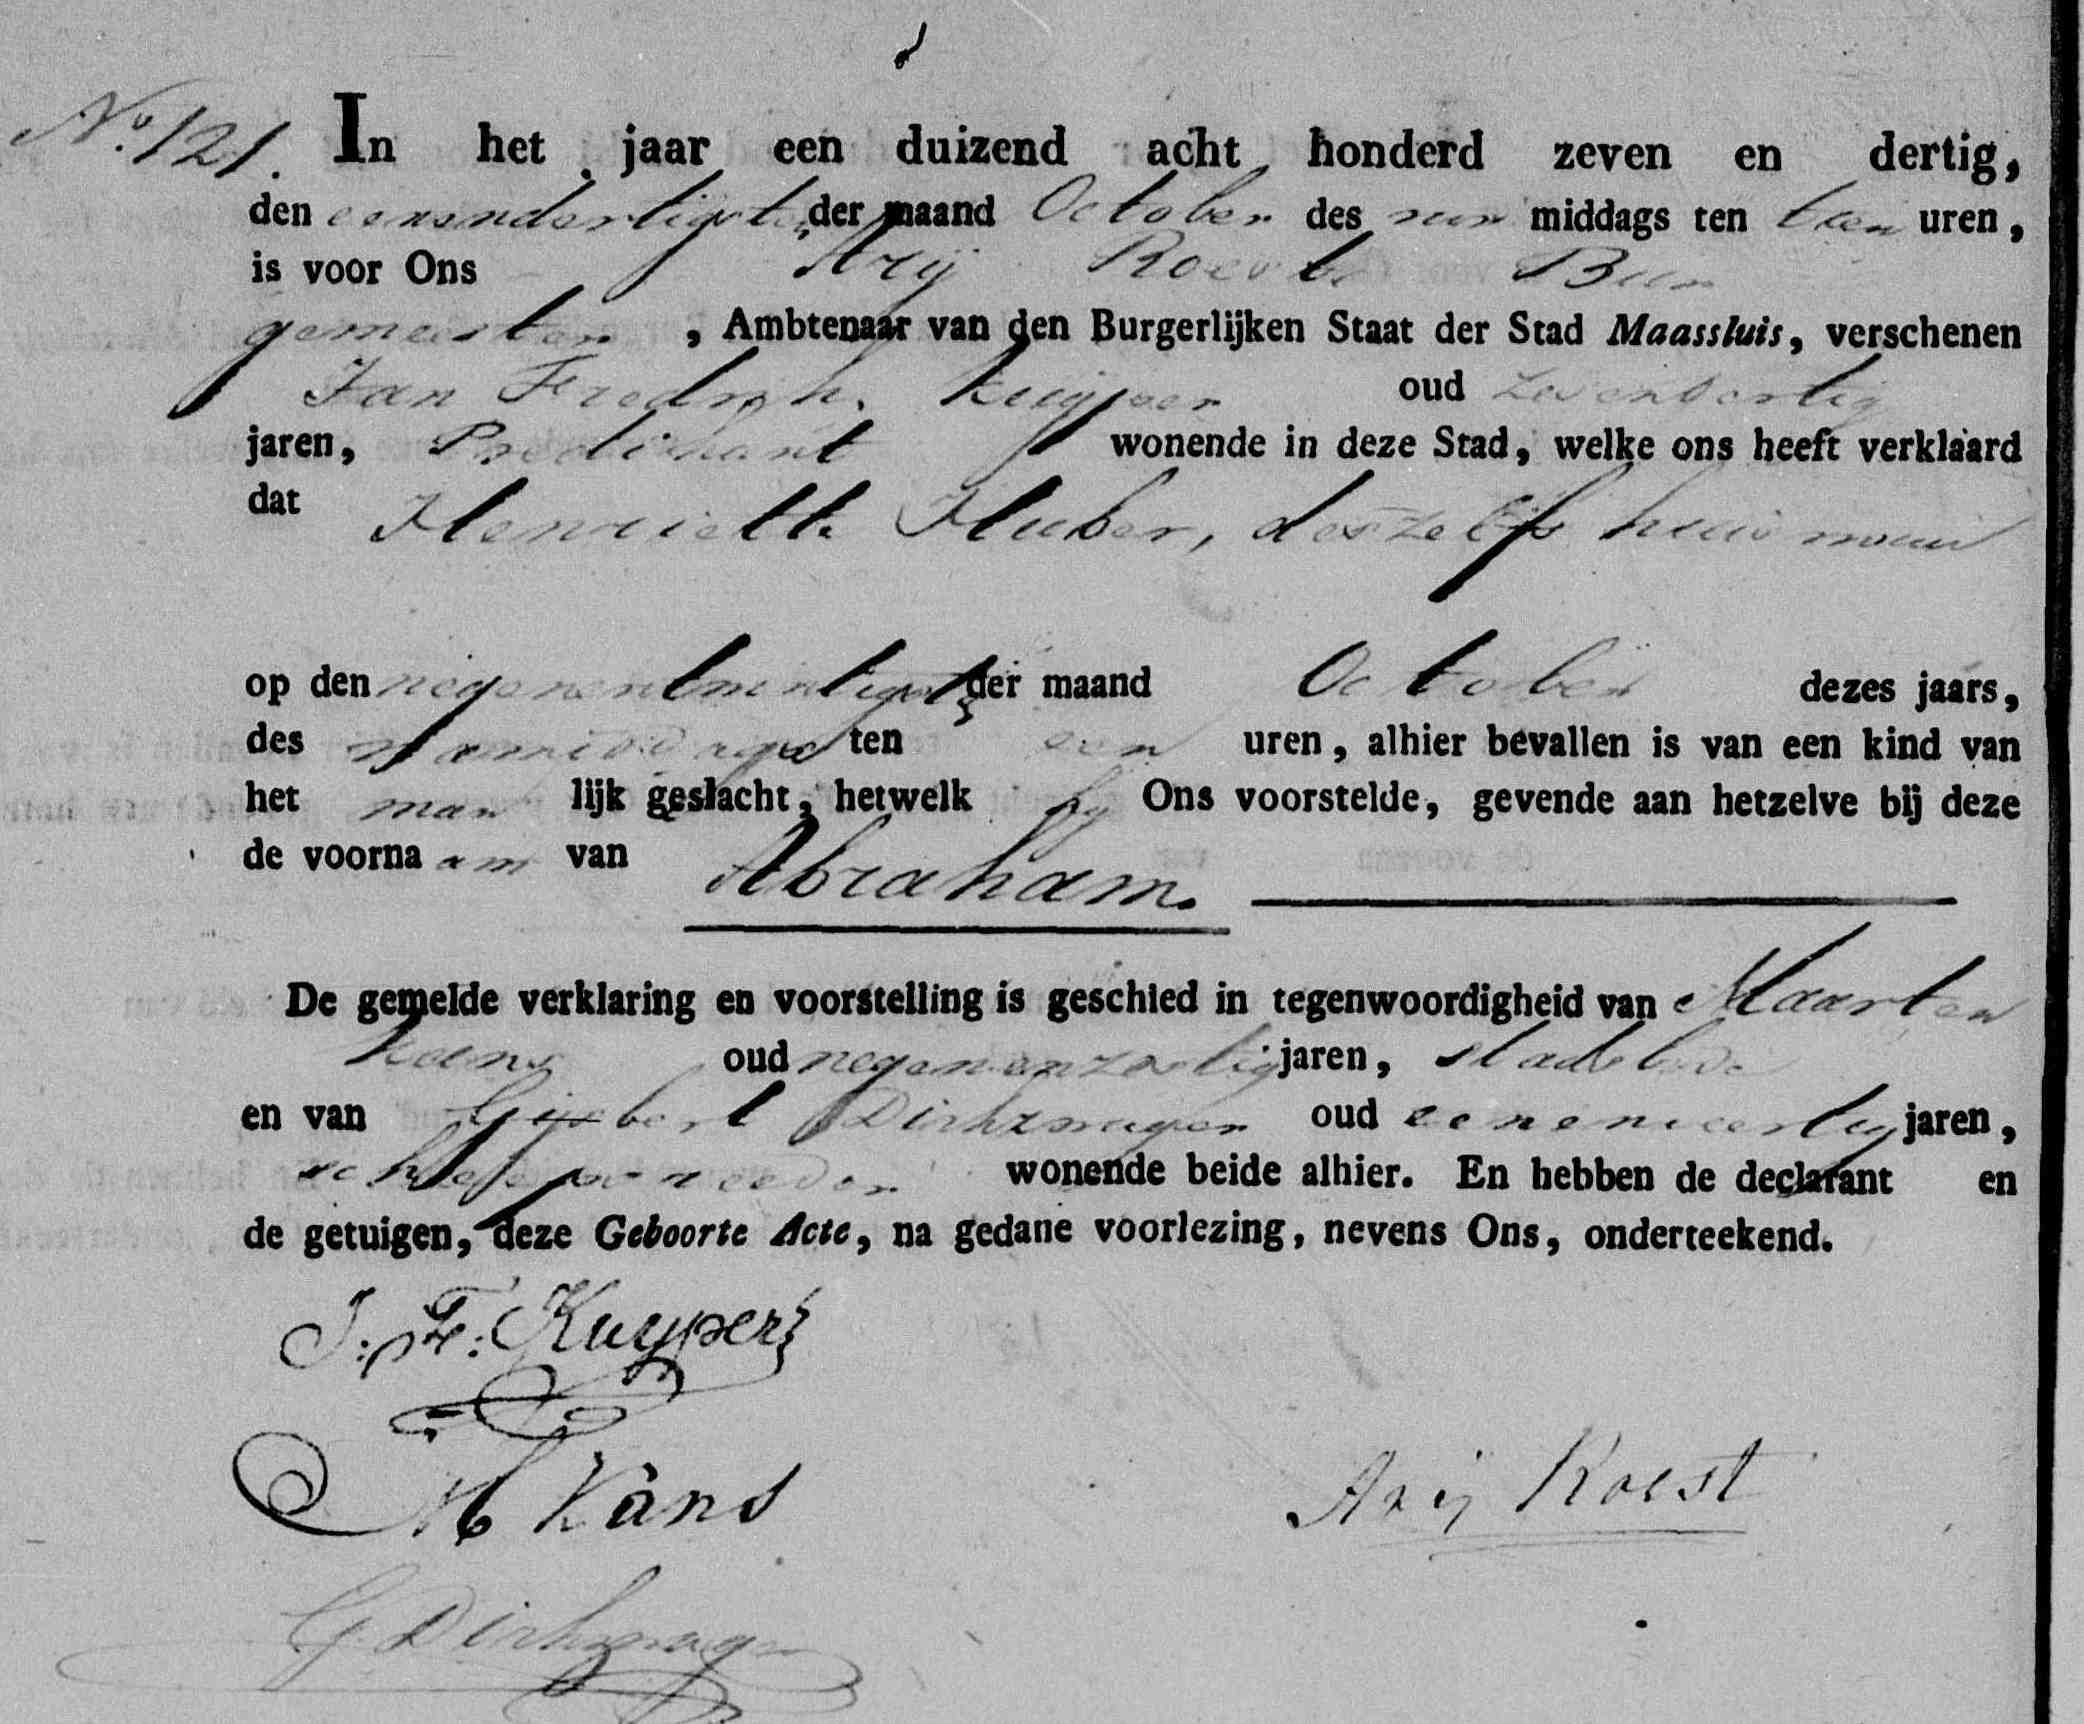 No. 121. In het jaar een duizend acht honderd zeven en dertig,
den eenendertigste der maand October des voor middags ten tien uren,
is voor Ons Arij Roest Bur
gemeester, Ambtenaar van den Burgerlijken Staat der Stad Maassluis, verschenen
Jan Fredrik Kuijper oud zevendertig
jaren, Predikant wonende in deze Stad, welke ons heeft verklaard
dat Henriette Huber, deszelfs huisvrouw
op den negenentwintigste der maand October dezes jaars,
des namiddags ten een uren, alhier bevallen is van een kind van
het man lijk geslacht, hetwelk hij Ons voorstelde, gevende aan hetzelve bij deze
de voorna am van Abraham.
De gemelde verklaring en voorstelling is geschied in tegenwoordigheid van Maarten
Kans oud negenenzestig jaren, stadsbode
en van Gijsbert Dirkzwager oud eenenveertig jaren,
scheepsreeder wonende beide alhier. En hebben de declarant en
de getuigen, deze Geboorte Acte, na gedane voorlezing, nevens Ons, onderteekend.
J: F: Kuyper
M Kans
Arij Roest
G. Dirkzwager